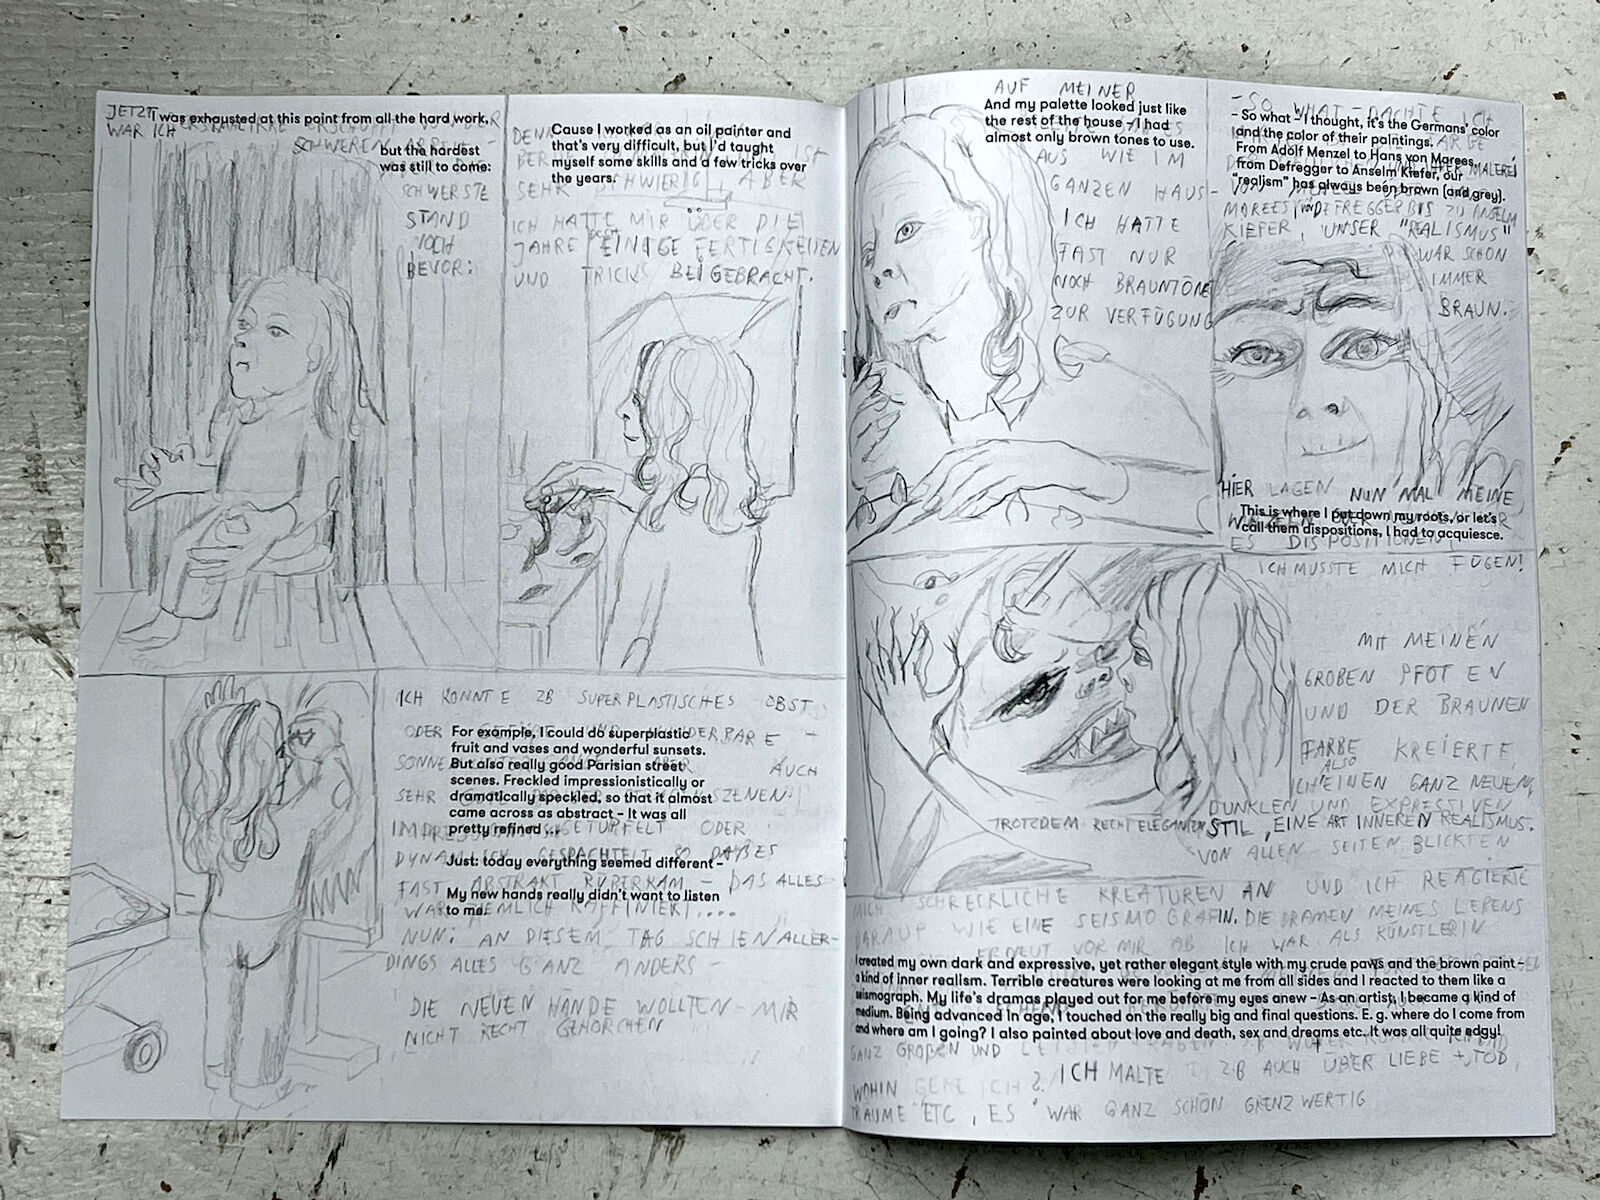 JETZT
WAR ICH
I was exhausted at this point from all the hard work,
SCHWEREN
but the hardest
was still to come:
SCHWERSTE
STAND
NOCH
BEVOR:
DENN
Cause I worked as an oil painter and
that's very difficult, but I'd taught
myself some skills and a few tricks over
the years.
IST
SEHR SCHWIERIG ABER
ICH HATTE MIR ÜBER DIE
JAHRE EINIGE FERTIGKEITEN
UND TRICKS BEIGEBRACHT.
ICH KONNTE ZB SUPERPLASTISCHES OBST
ODER
For example, I could do superplastic
fruit and vases and wonderful sunsets.
But also really good Parisian street
scenes. Freckled impressionistically or
dramatically speckled, so that it almost
came across as abstract – It was all
pretty refined ...
Just: today everything seemed different –
My new hands really didn't want to listen
to me.
AUCH
SEHR
GETUPFELT ODER
GESPACHTELT SO DAß ES
FAST ABSTRAKT RÜBERKAM – DAS ALLES
WAR ZIEMLICH RAFFINIERT....
NUN: AN DIESEM TAG SCHIEN ALLER-
DINGS ALLES GANZ ANDERS –
DIE NEUEN HÄNDE WOLLTEN – MIR
NICHT RECHT GEHORCHEN
AUF MEINER
And my palette looked just like
the rest of the house – I had
almost only brown tones to use.
AUS WIE IM
GANZEN HAUS –
ICH HATTE
FAST NUR
NOCH BRAUNTÖNE
ZUR VERFÜGUNG
– SO WHAT – DACHTE ICH
– So what – I thought, it's the Germans' color
and the color of their paintings.
From Adolf Menzel to Hans von Marees,
from Defregger to Anselm Kiefer, our
"realism" has always been brown (and grey).
MALEREI
MAREES, VON DEFREGGER BIS ZU ANSELM
KIEFER, UNSER "REALISMUS"
WAR SCHON
IMMER
BRAUN.
HIER LAGEN NUN MAL MEINE
This is where I put down my roots, or let's
call them dispositions, I had to acquiesce.
ES DISPOSITIONEN
ICH MUSSTE MICH FÜGEN!
MIT MEINEN
GROBEN PFOTEN
UND DER BRAUNEN
FARBE KREIERTE
ALSO
ICH EINEN GANZ NEUEN,
DUNKLEN UND EXPRESSIVEN
TROTZDEM RECHT ELEGANTEN STIL, EINE ART INNEREN REALISMUS.
VON ALLEN SEITEN BLICKTEN
MICH SCHRECKLICHE KREATUREN AN UND ICH REAGIERTE
DARAUF WIE EINE SEISMOGRAFIN. DIE DRAMEN MEINES LEBENS
ERNEUT VOR MIR AB ICH WAR ALS KÜNSTLERIN
I created my own dark and expressive, yet rather elegant style with my crude paws and the brown paint –
a kind of inner realism. Terrible creatures were looking at me from all sides and I reacted to them like a
seismograph. My life's dramas played out for me before my eyes anew – As an artist, I became a kind of
medium. Being advanced in age, I touched on the really big and final questions. E. g. where do I come from
and where am I going? I also painted about love and death, sex and dreams etc. It was all quite edgy!
GANZ GROßEN UND
WOHIN GEHE ICH? ICH MALTE ZB AUCH ÜBER LIEBE + TOD,
TRÄUME ETC, ES WAR GANZ SCHÖN GRENZWERTIG